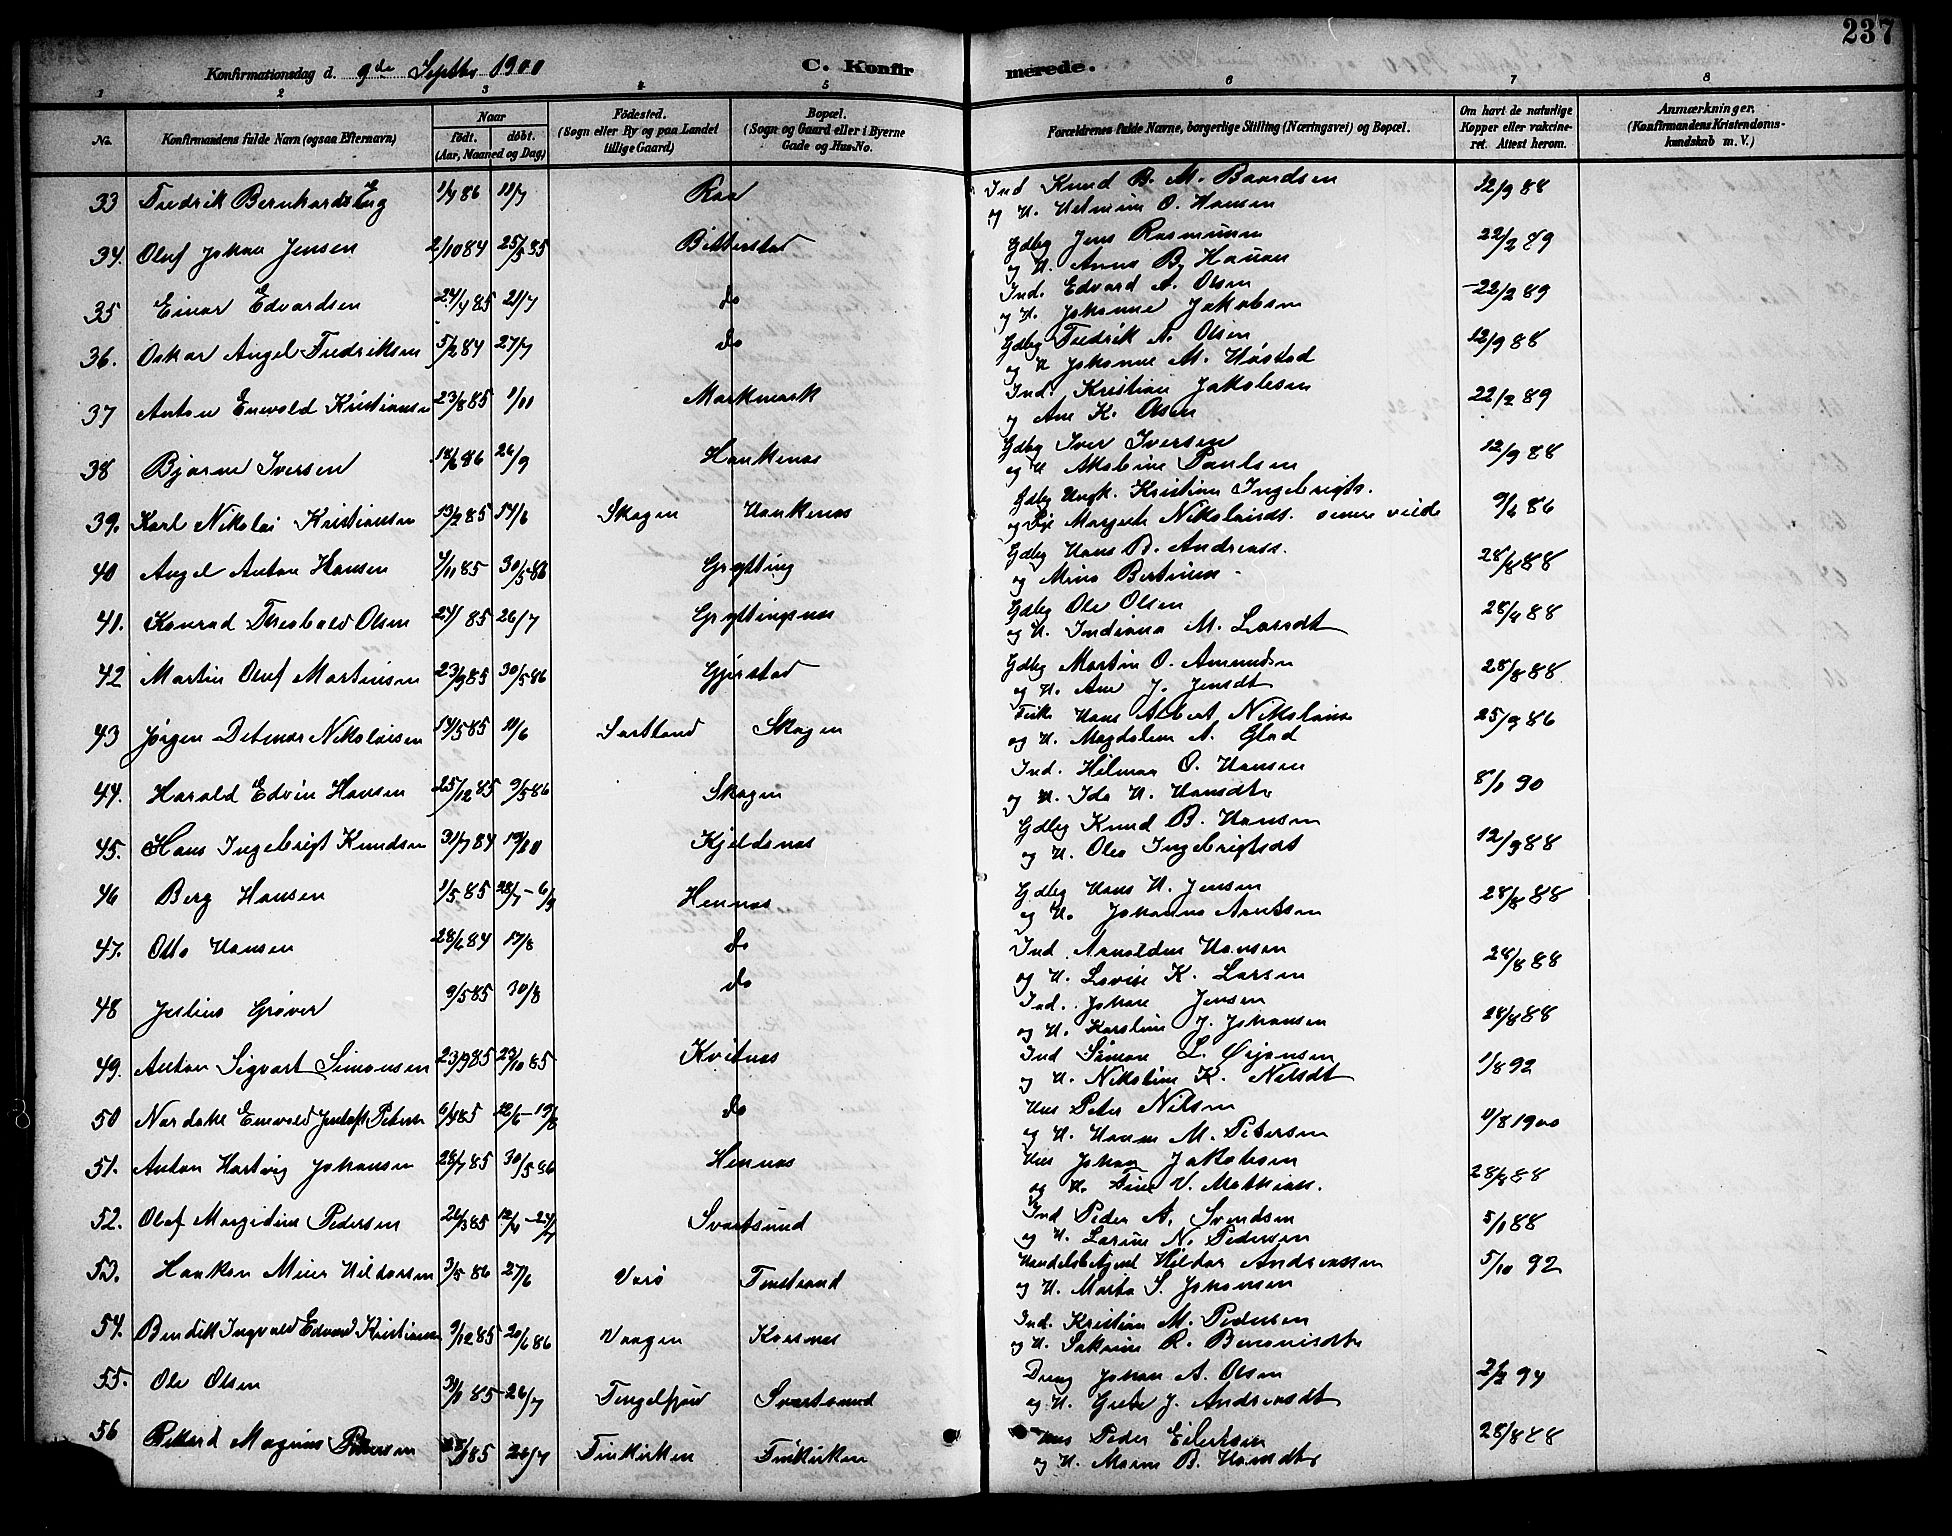 237
Konfirmationsdag d. 9de Septbr 1900 C. Konfirmerede.
1 2 3 4 5 6 7 8
No. Konfirmandens fulde Navn (ogsaa Efternavn) Naar født. døbt. (Aar, Maaned og Dag) Födested. (Sogn eller By og paa Landet tillige Gaard) Bopæl. (Sogn og Gaard eller i Byerne Gade og Hus-No. Forældrenes fulde Navne, borgerlige Stilling (Næringsvei) og Bopæl. Om havt de naturlige Kopper eller vakcineret. Attest herom. Anmærkninger. (Konfirmandens Kristendomskundskab m. V.)
33 Fredrik Bernhards Eng 1/7 86 11/7 Raa Ind Knud B. M. Baardsen 12/9 88
og H. Helmine O. Hansen
34. Oluf Johan Jensen 2/10 84 25/5 85 Bitterstad Gdbg Jens Rasmussen 22/2 89
og H. Anna B. Hansen
35 Einar Edvardsen 24/4 85 21/7 do Ind. Edvard A. Olsen 22/2 89
og H. Johanne Jakobsen
36. Oskar Angel Fredriksen 5/2 84 27/7 do Gdbg Fredrik A. Olsen 12/9 88
og H Johanne M. Høstad
37 Anton Enevold Kristiansen 23/8 85 1/11 Markmark Ind. Kristian Jakobsen 22/2 89
og Ane K. Olsen
38 Bjarne Iversen 18/6 86 26/9 Hankenæs Gdbg Iver Iversen 12/9 88
og H Paulsen
39. Karl Nikolai Kristiansen 13/2 85 14/6 Skagen Hankenæs Gdbg Ungk. Kristian Ingebrigts. 9/6 86
og Pige Margrete Nikolaisdt. senere viede
40 Angel Anton Hansen 4/11 85 30/5 86 Grytting Gdbg Hans B. Andreass. 28/8 88
og Mina Bertinus
41. Konrad Theobald Olsen 24/ 85 26/7 Gryttingsnæs Gdbg Ole Olsen 28/8 88
og H. Indiana M. Larsdt
42 Martin Oluf Martinsen 23/9 85 30/5 86 Gjerstad Gdbg Martin O. Amundsen 28/8 88
og H. Ane J. Jensdt
43 Jørgen Detmar Nikolaisen 14/5 85 11/6 Sortland Skagen Fisk. Hans Albert Nikolaise 25/9 86
og H. Magdalena A. Glad
44. Harald Edvin Hansen 25/12 85 9/5 86 Skagen Ind. Hilmar O. Hansen 8/1 90
og H. Ida H. Hansdtr
45. Hans Ingebrigt Knudsen 31/7 84 19/10 Kjeldsnæs Gdbg Knud B. Hansen 12/9 88
og H. Olea Ingebrigtsdt
46 Berg Hansen 1/5 85 28/7 - 6/9 Hennæs Gdbg Hans H. Jensen 28/8 88
og H. Johanna Arntsen
47. Otto Hansen 28/6 84 17/8 do Ind. Arnoldus Hansen 28/8 88
og H. Lovise K. Larsen
48 Julius Grøver 9/5 85 30/8 do Ind. Johan Jensen 28/8 88
og H. Karoline J. Johansen
49. Anton Sigvart Simonsen 23/9 85 23/10 85 Kvitnæs Ind Simon L. Ørjansen 1/8 92
og H. Nikoline K. Nilsdt
50 Nordahl Enevold Petersen 6/4 85 22/6 - 19/8 do Hus Peter Nilsen 4/8 1900
og H. Hanna M. Petersen
51. Anton Hartvig Johansen 28/7 85 30/5 86 Hennæs Hus Johan Jakobsen 28/8 88
og H. Tine V. Mathias.
52. Olaf Margidius Pedersen 26/3 85 12/6 - 24/7 Svartsund Ind Peder A. Svendsen 5/1 88
og H. Larine N. Pedersen
53. Haakon Meier Hildorsen 3/5 86 27/6 Værø Finstrand Handelsbetjent Hildor Andreassen 5/10 92
og H. Marta S. Johansen
54. Bendikt Ingvald Edvard Kristiansen 9/12 85 20/6 86 Vaagen Korsnæs Ind. Kristian M. Pedersen
og H. Sakrine R. Benonisdtr
55. Ole Olsen 31/1 85 26/7 Tengelfjord Svartsund Johan A. Olsen 2/2 94
og H. Grete J. Andreasdt
56 Rikard Magnus Pedersen 85 26/7 Finkirken Finkirken Hus Peder Eilertsen 28/8 88
og H. Maren B. Hansdtr